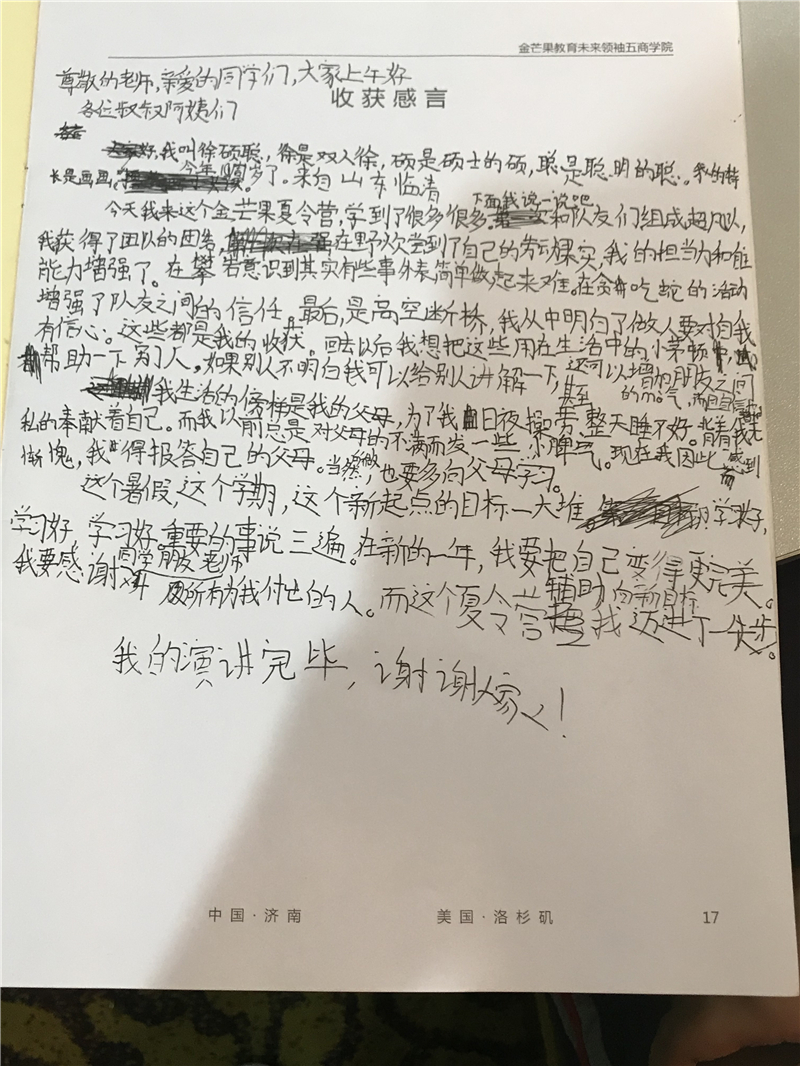 金芒果教育未来领袖五商学院
尊敬的老师,亲爱的同学们,大家上午好
各位叔叔阿姨们
收获感言
我叫徐硕聪,徐是双人徐,硕是硕士的硕,聪是聪明的聪。我的特
长是画画。今年 岁了。来自山东临清
下面我说一说吧
今天我来这个金芒果夏令营,学到了很多很多。和队友们组成超凡队,
我获得了团队的团结,在野炊尝到了自己的劳动果实,我的担当力和
能力增强了。在攀岩意识到其实有些事外表简单做起来难。在贪吃蛇的活动
增强了队友之间的信任。最后,是高空断桥,我从中明白了做人要对自我
有信心。这些都是我的收获。回去以后我想把这些用在生活中的小茅
帮助一下别人,如果别人不明白我可以给别人讲解一下,还可以增加朋友之间
我生活的榜样是我的父母,为了我日夜操劳,整天睡不好。
私的奉献着自己。而我以前总是对父母的不满而发一些小脾气。现在我因此感到
惭愧,我得报答自己的父母。当然,也要多向父母学习。
这个暑假,这个学期,这个新起点的目标一大堆。学习好,
学习好,学习好。重要的事说三遍。在新的一年,我要把自己变得更完美。
我要感谢同学朋友老师及所有为我付出的人。而这个夏令营辅助我向新目标迈进了一大步。
我的演讲完毕,谢谢大家!
中国·济南
美国·洛杉矶
17